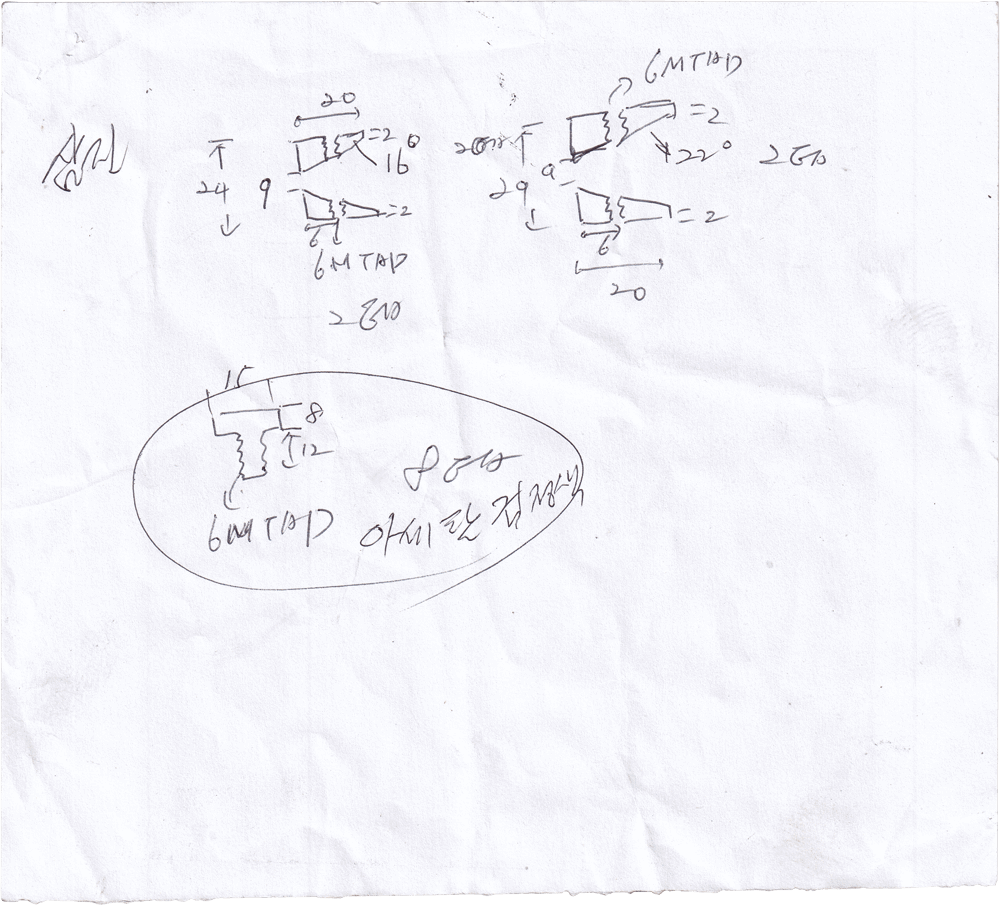 20
=2
16°
24
9
=2
6
6M TAP
2EA
6M TAP
=2
22°
2EA
29
9
=2
6
20
15
8
12
8EA
6M TAP
아세탈 검정색